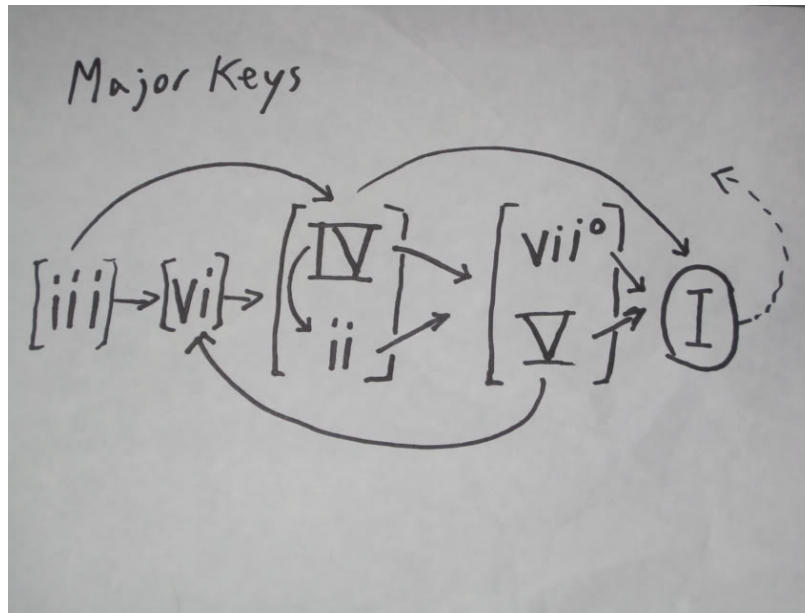 Major Keys
[iii] [vi] [IV ii] [vii° V] I